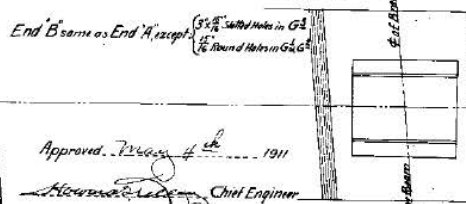 End "B" same as End "A", except { 3"x 15/16" Slotted Holes in G
15/16" Round Holes in G
Approved May 4th 1911
Chief Engineer
¢ of Beam
Beam